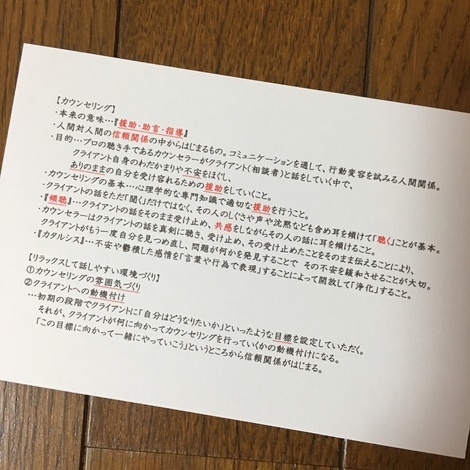 【カウンセリング】
・本来の意味…『援助・助言・指導』
・人間対人間の信頼関係の中からはじまるもの。コミュニケーションを通して、行動変容を試みる人間関係。
・目的…プロの聴き手であるカウンセラーがクライアント(相談者)と話をしていく中で、
クライアント自身のわだかまりや不安をほぐし、
ありのままの自分を受け容れるための援助をしていくこと。
・カウンセリングの基本…心理学的な専門知識で適切な援助を行うこと。
・クライアントの話をただ「聞く」だけではなく、その人のしぐさや声や沈黙なども含め耳を傾けて「聴く」ことが基本。
・『傾聴』…クライアントの話をそのまま受け止め、共感をしながらその人の話に耳を傾けること。
・カウンセラーはクライアントの話を真剣に聴き、受け止め、その受け止めたことをそのまま伝えることにより、
クライアントがもう一度自分を見つめ直し、問題が何かを発見することで その不安を緩和させることが大切。
・『カタルシス』…不安や鬱積した感情を「言葉や行為で表現」することによって開放して「浄化」すること。
【リラックスして話しやすい環境づくり】
①カウンセリングの雰囲気づくり
②クライアントへの動機付け
…初期の段階でクライアントに「自分はどうなりたいか」といったような目標を設定していただく。
それが、クライアントが何に向かってカウンセリングを行っていくかの動機付けになる。
「この目標に向かって一緒にやっていこう」というところから信頼関係がはじまる。